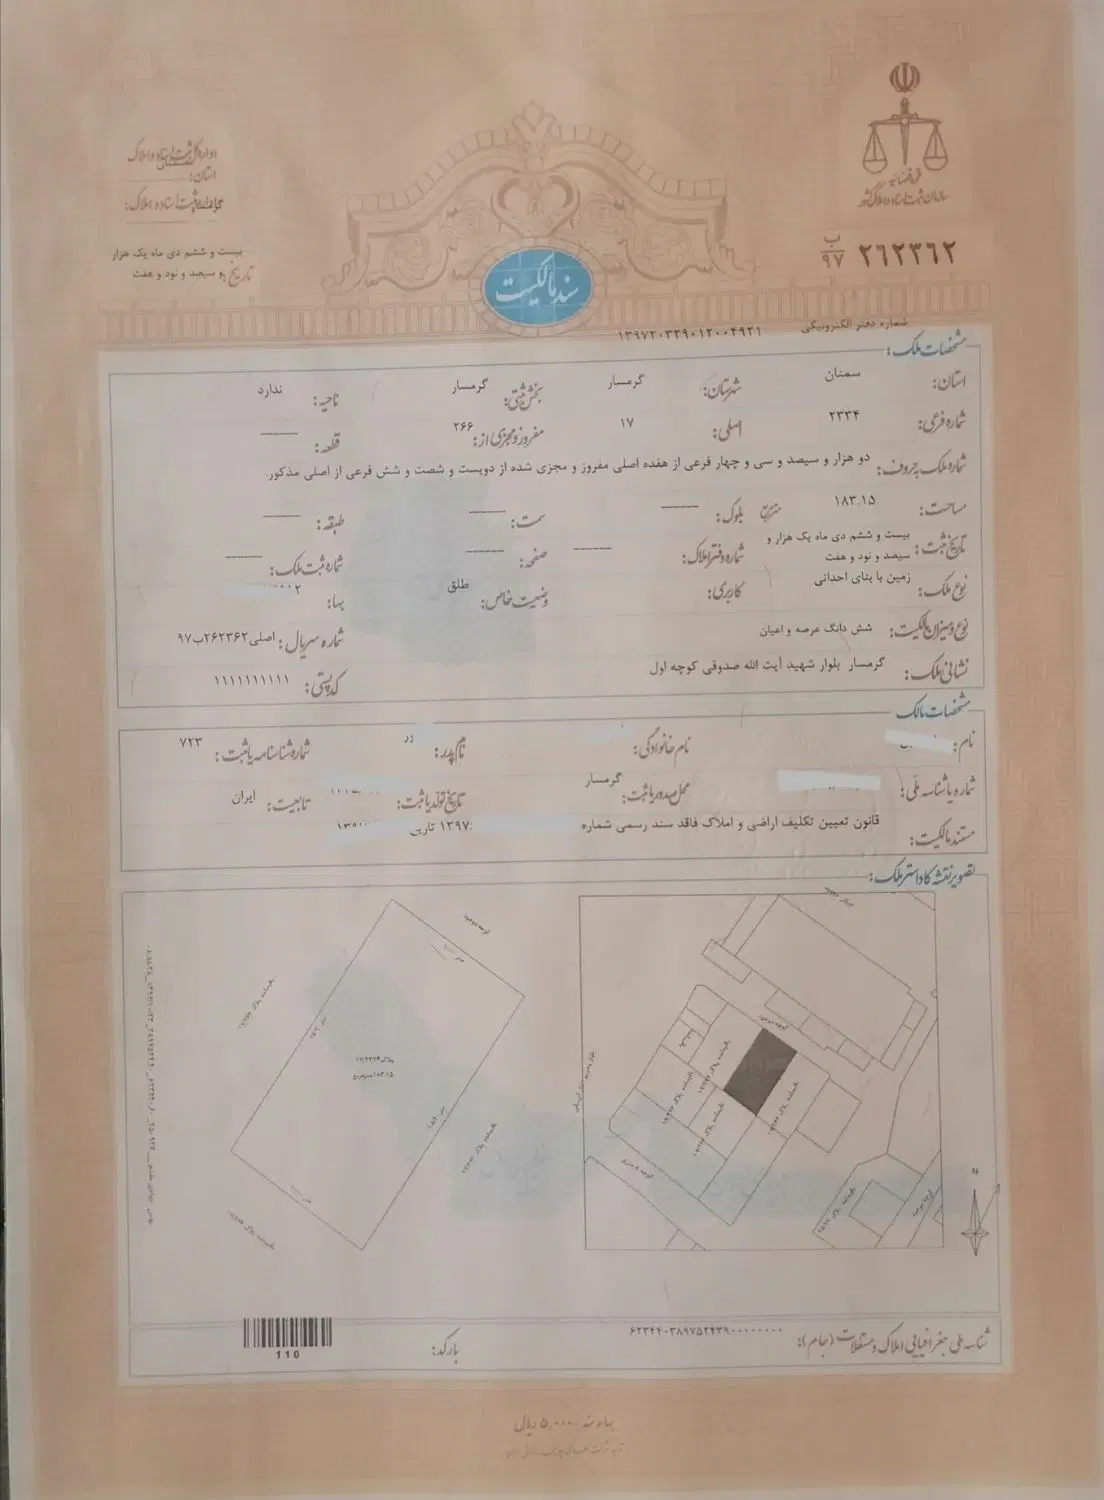 قوه قضائیه
سازمان ثبت اسناد و املاک کشور
اداره کل ثبت اسناد و املاک
استان:
اداره ثبت اسناد و املاک:
۲۶۲۳۶۲ ب ۹۷
تاریخ: بیست و ششم دی ماه یک هزار و سیصد و نود و هفت
سند مالکیت
شماره دفتر الکترونیکی ۱۳۹۷۲۰۳۲۹۰۱۲۰۰۴۹۲۱
مشخصات ملک:
استان: سمنان شهرستان: گرمسار بخش ثبتی: گرمسار ناحیه: ندارد
شماره فرعی: ۲۳۳۴ اصلی: ۱۷ مفروز و مجزی از: ۲۶۶ قطعه:
شماره ملک به حروف: دو هزار و سیصد و سی و چهار فرعی از هفده اصلی مفروز و مجزی شده از دویست و شصت و شش فرعی از اصلی مذکور.
مساحت: ۱۸۳.۱۵ مترمربع بلوک: سمت: طبقه:
تاریخ ثبت: بیست و ششم دی ماه یک هزار و سیصد و نود و هفت شماره دفتر املاک: صفحه: شماره ثبت ملک:
نوع ملک: زمین با بنای احداثی کاربری: وضعیت خاص: طلق بها:
نوع و میزان مالکیت: شش دانگ عرصه و اعیان شماره سریال: اصلی ۲۶۲۳۶۲ب۹۷
نشانی ملک: گرمسار بلوار شهید آیت الله صدوقی کوچه اول کدپستی: ۱۱۱۱۱۱۱۱۱۱
مشخصات مالک
نام: نام خانوادگی: نام پدر: شماره شناسنامه یا ثبت: ۷۲۳
شماره یا شناسه ملی: محل صدور یا ثبت: گرمسار تاریخ تولد یا ثبت: تابعیت: ایران
مستند مالکیت: قانون تعیین تکلیف اراضی و املاک فاقد سند رسمی شماره ۱۳۹۷ تاریخ
تصویر نقشه کاداستر ملک:
پلاک ۱۷/۲۳۳۴
۱۸۳.۱۵ مترمربع
N
شناسه ملی جغرافیایی املاک و مستغلات (جام): ۶۲۳۴۴۰۳۸۹۷۵۲۴۳۹۰۰۰۰۰۰۰۰
بارکد: 110
بهاء سند ۵,۰۰۰ ریال